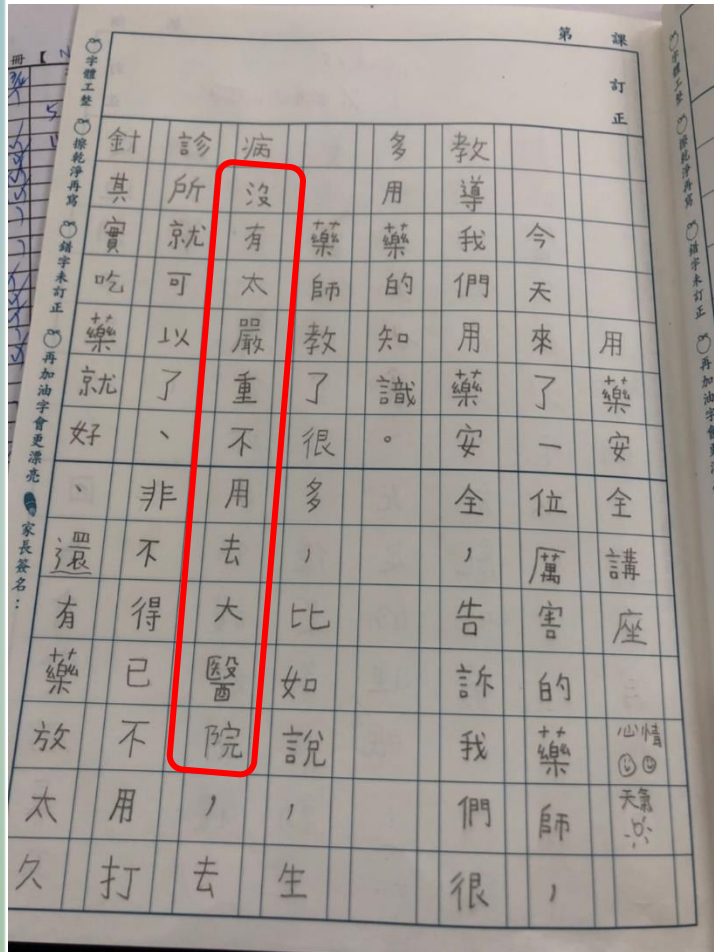 第 課 訂正
用藥安全講座 心情 天氣
今天來了一位厲害的藥師，
教導我們用藥安全，告訴我們很
多用藥的知識。
藥師教了很多，比如說，生
病沒有太嚴重不用去大醫院，去
診所就可以了、非不得已不用打
針其實吃藥就好、還有藥放太久
字體工整 擦乾淨再寫 錯字未訂正 再加油字會更漂亮 家長簽名：
冊【 N